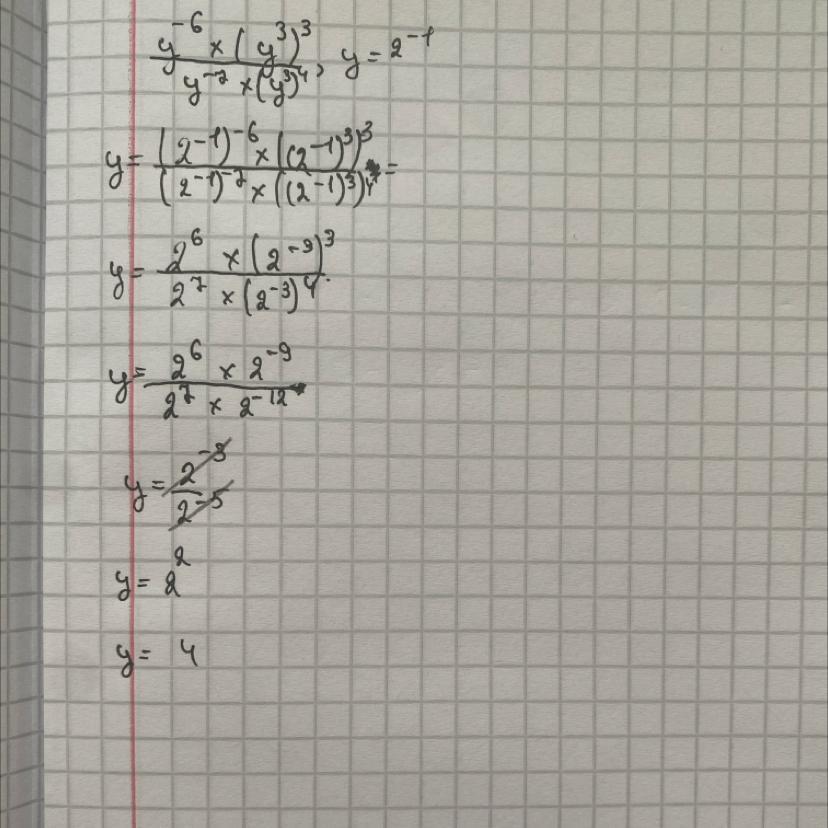 y⁻⁶ × (y³)³ / y⁻⁷ × (y³)⁴, y = 2⁻¹
y = (2⁻¹)⁻⁶ × ((2⁻¹)³)³ / (2⁻¹)⁻⁷ × ((2⁻¹)³)⁴ =
y = 2⁶ × (2⁻³)³ / 2⁷ × (2⁻³)⁴
y = 2⁶ × 2⁻⁹ / 2⁷ × 2⁻¹²
y = 2⁻³ / 2⁻⁵
y = 2²
y = 4